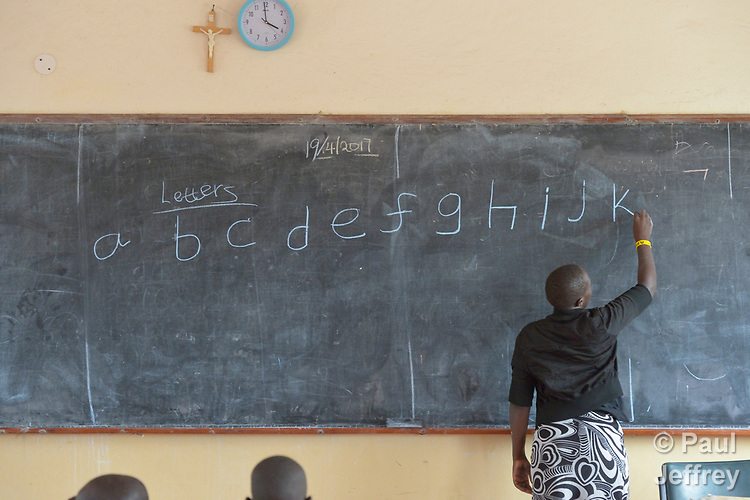 19/4/2017
Letters
a b c d e f g h i j k
© Paul
Jeffrey